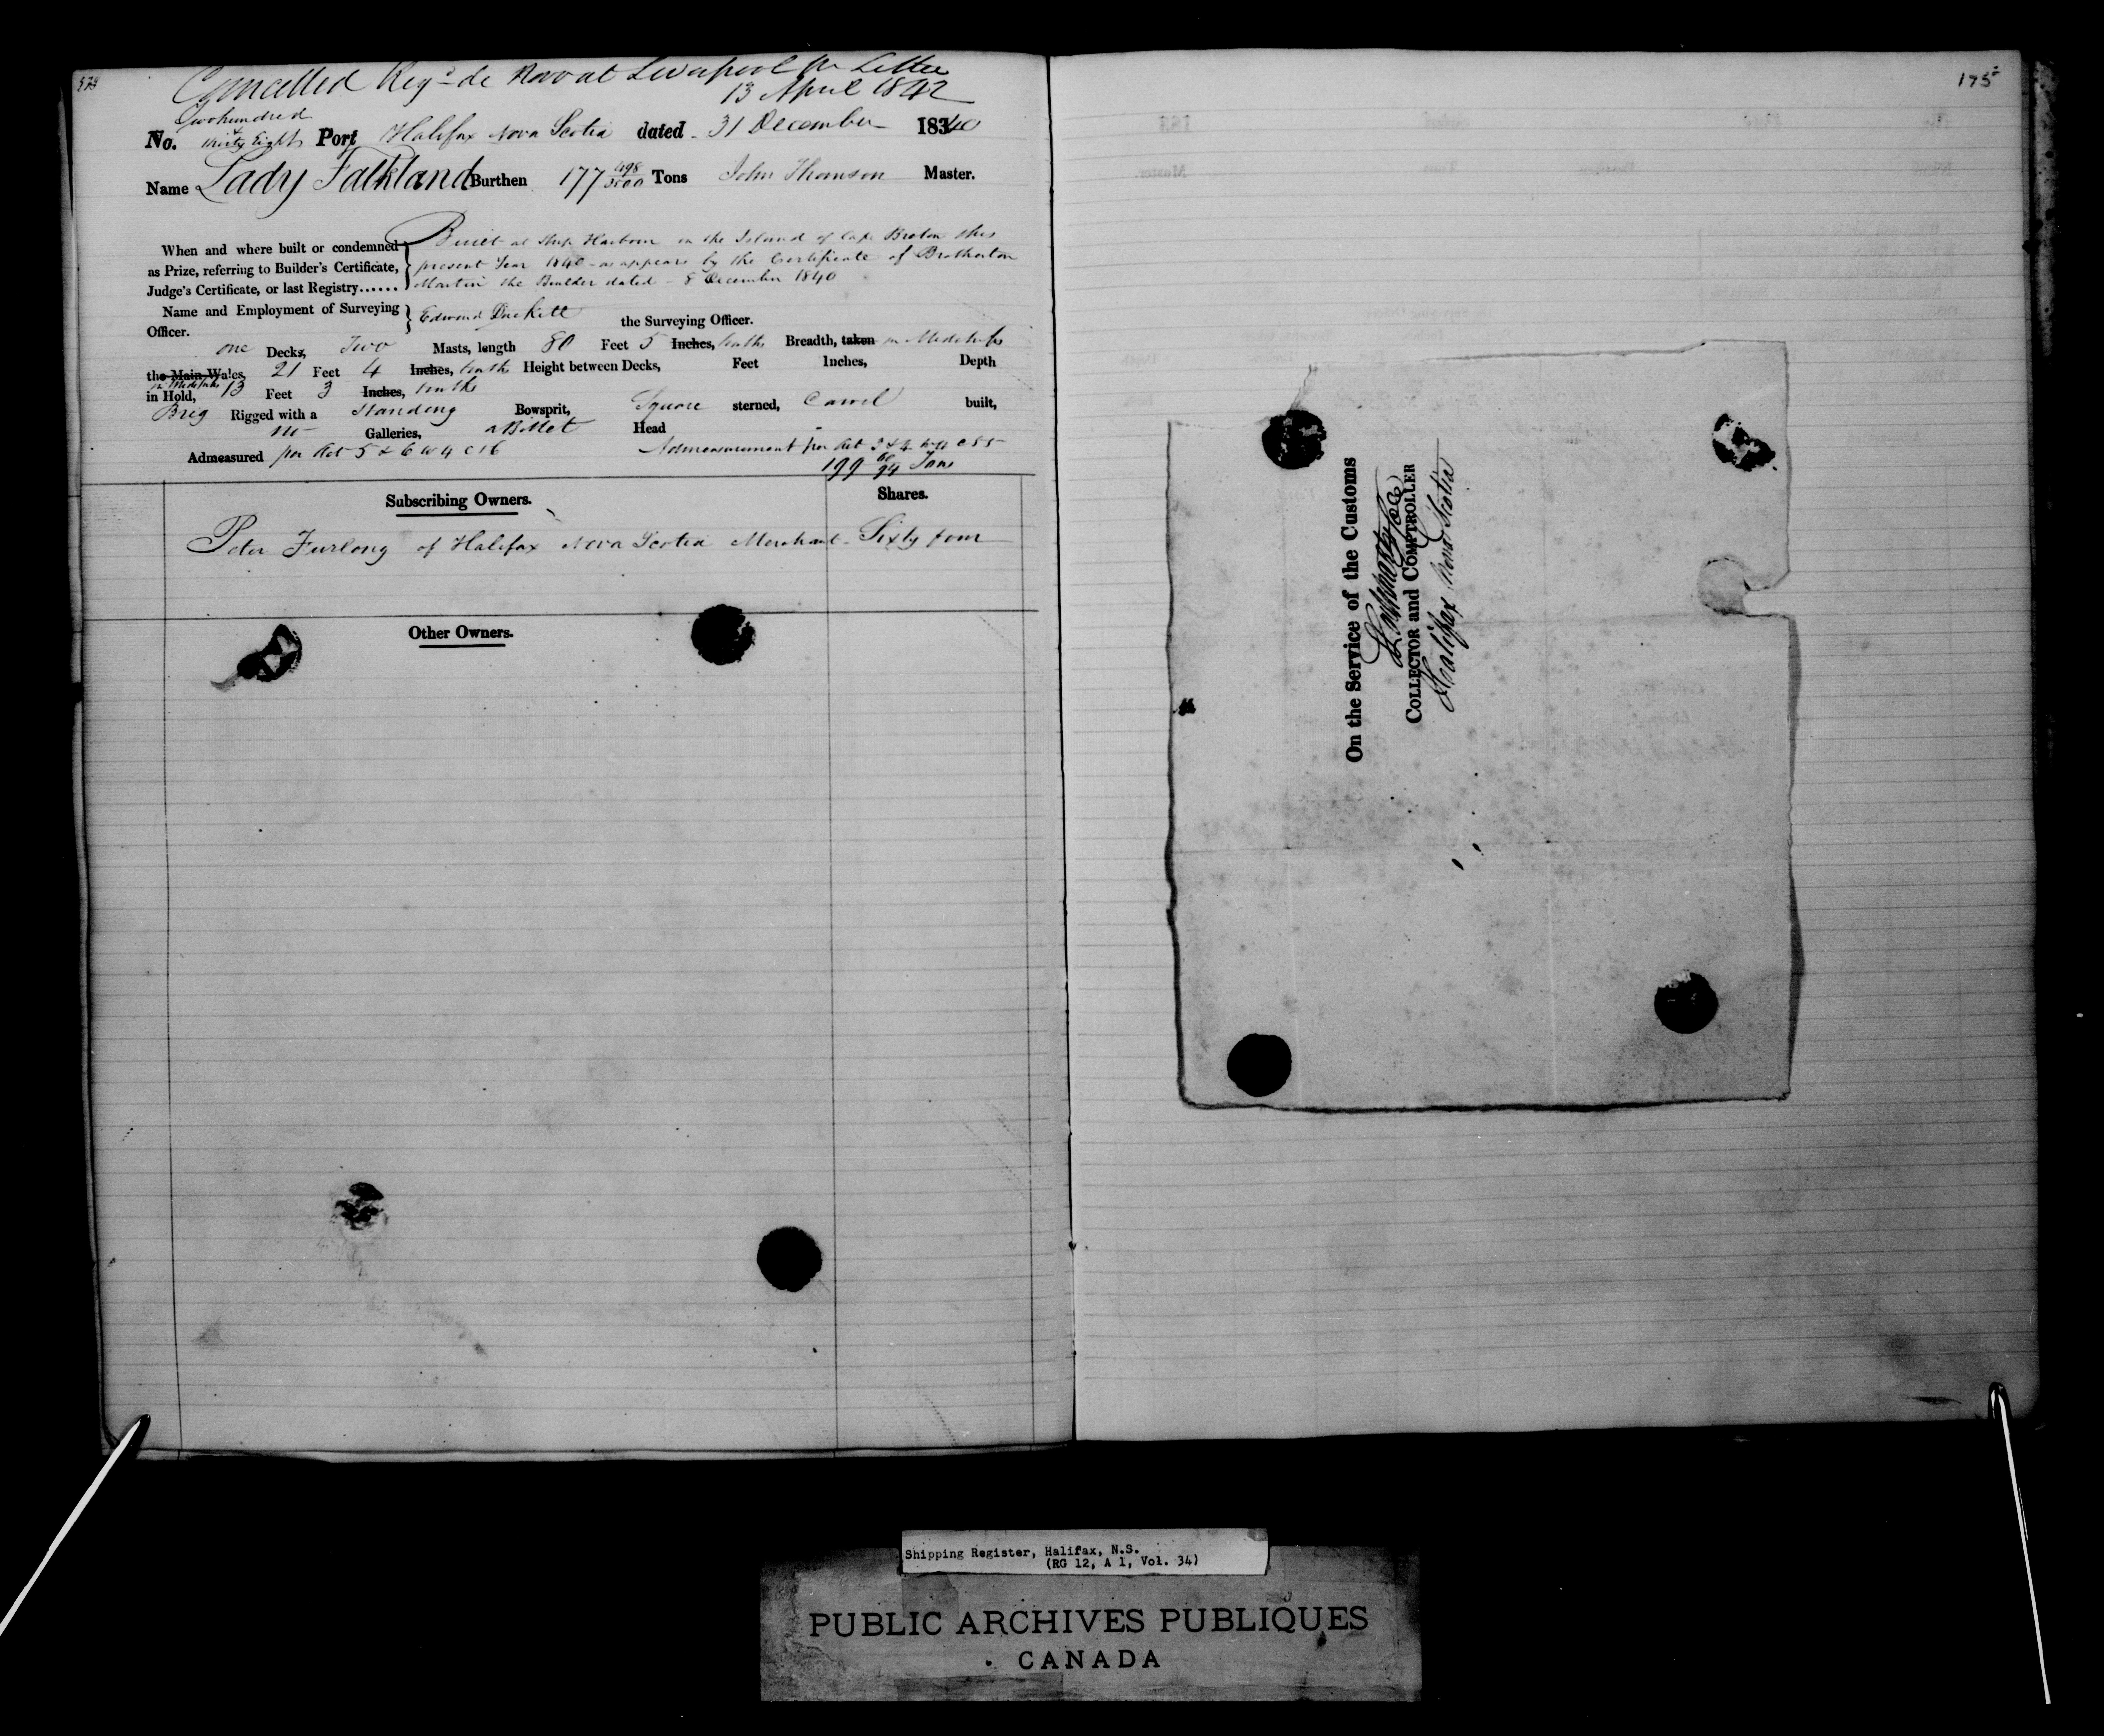 Cancelled Reg^d de Novo at Liverpool pr Letter
13 April 1842
No. Two hundred & thirty Eight Port Halifax Nova Scotia dated 31 December 1840
Name Lady Falkland Burthen 177 498/3500 Tons John Thomson Master.
When and where built or condemned
as Prize, referring to Builder's Certificate,
Judge's Certificate, or last Registry......
Built at Ship Harbour in the Island of Cape Breton this
present Year 1840 as appears by the Certificate of Brotherton
Martin the Builder dated 8 December 1840
Name and Employment of Surveying
Officer.
Edward Duckett the Surveying Officer.
one Decks, Two Masts, length 80 Feet 5 Inches, tenths Breadth, taken in Midships
the Main Wales, 21 Feet 4 Inches, tenths Height between Decks, Feet Inches, Depth
in Hold, in Midships 13 Feet 3 Inches, tenths
Brig Rigged with a Standing Bowsprit, Square sterned, Carvel built,
no Galleries, a Billet Head
Admeasured per Act 5 & 6 W 4 C 56 Admeasurement per Act 3 & 4 W 4 C 55
199 Tons
Subscribing Owners. Shares.
Peter Furlong of Halifax Nova Scotia Merchant Sixty four
Other Owners.
175
On the Service of the Customs
COLLECTOR and COMPTROLLER
Halifax Nova Scotia
Shipping Register, Halifax, N.S.
(RG 12, A 1, Vol. 34)
PUBLIC ARCHIVES PUBLIQUES
CANADA